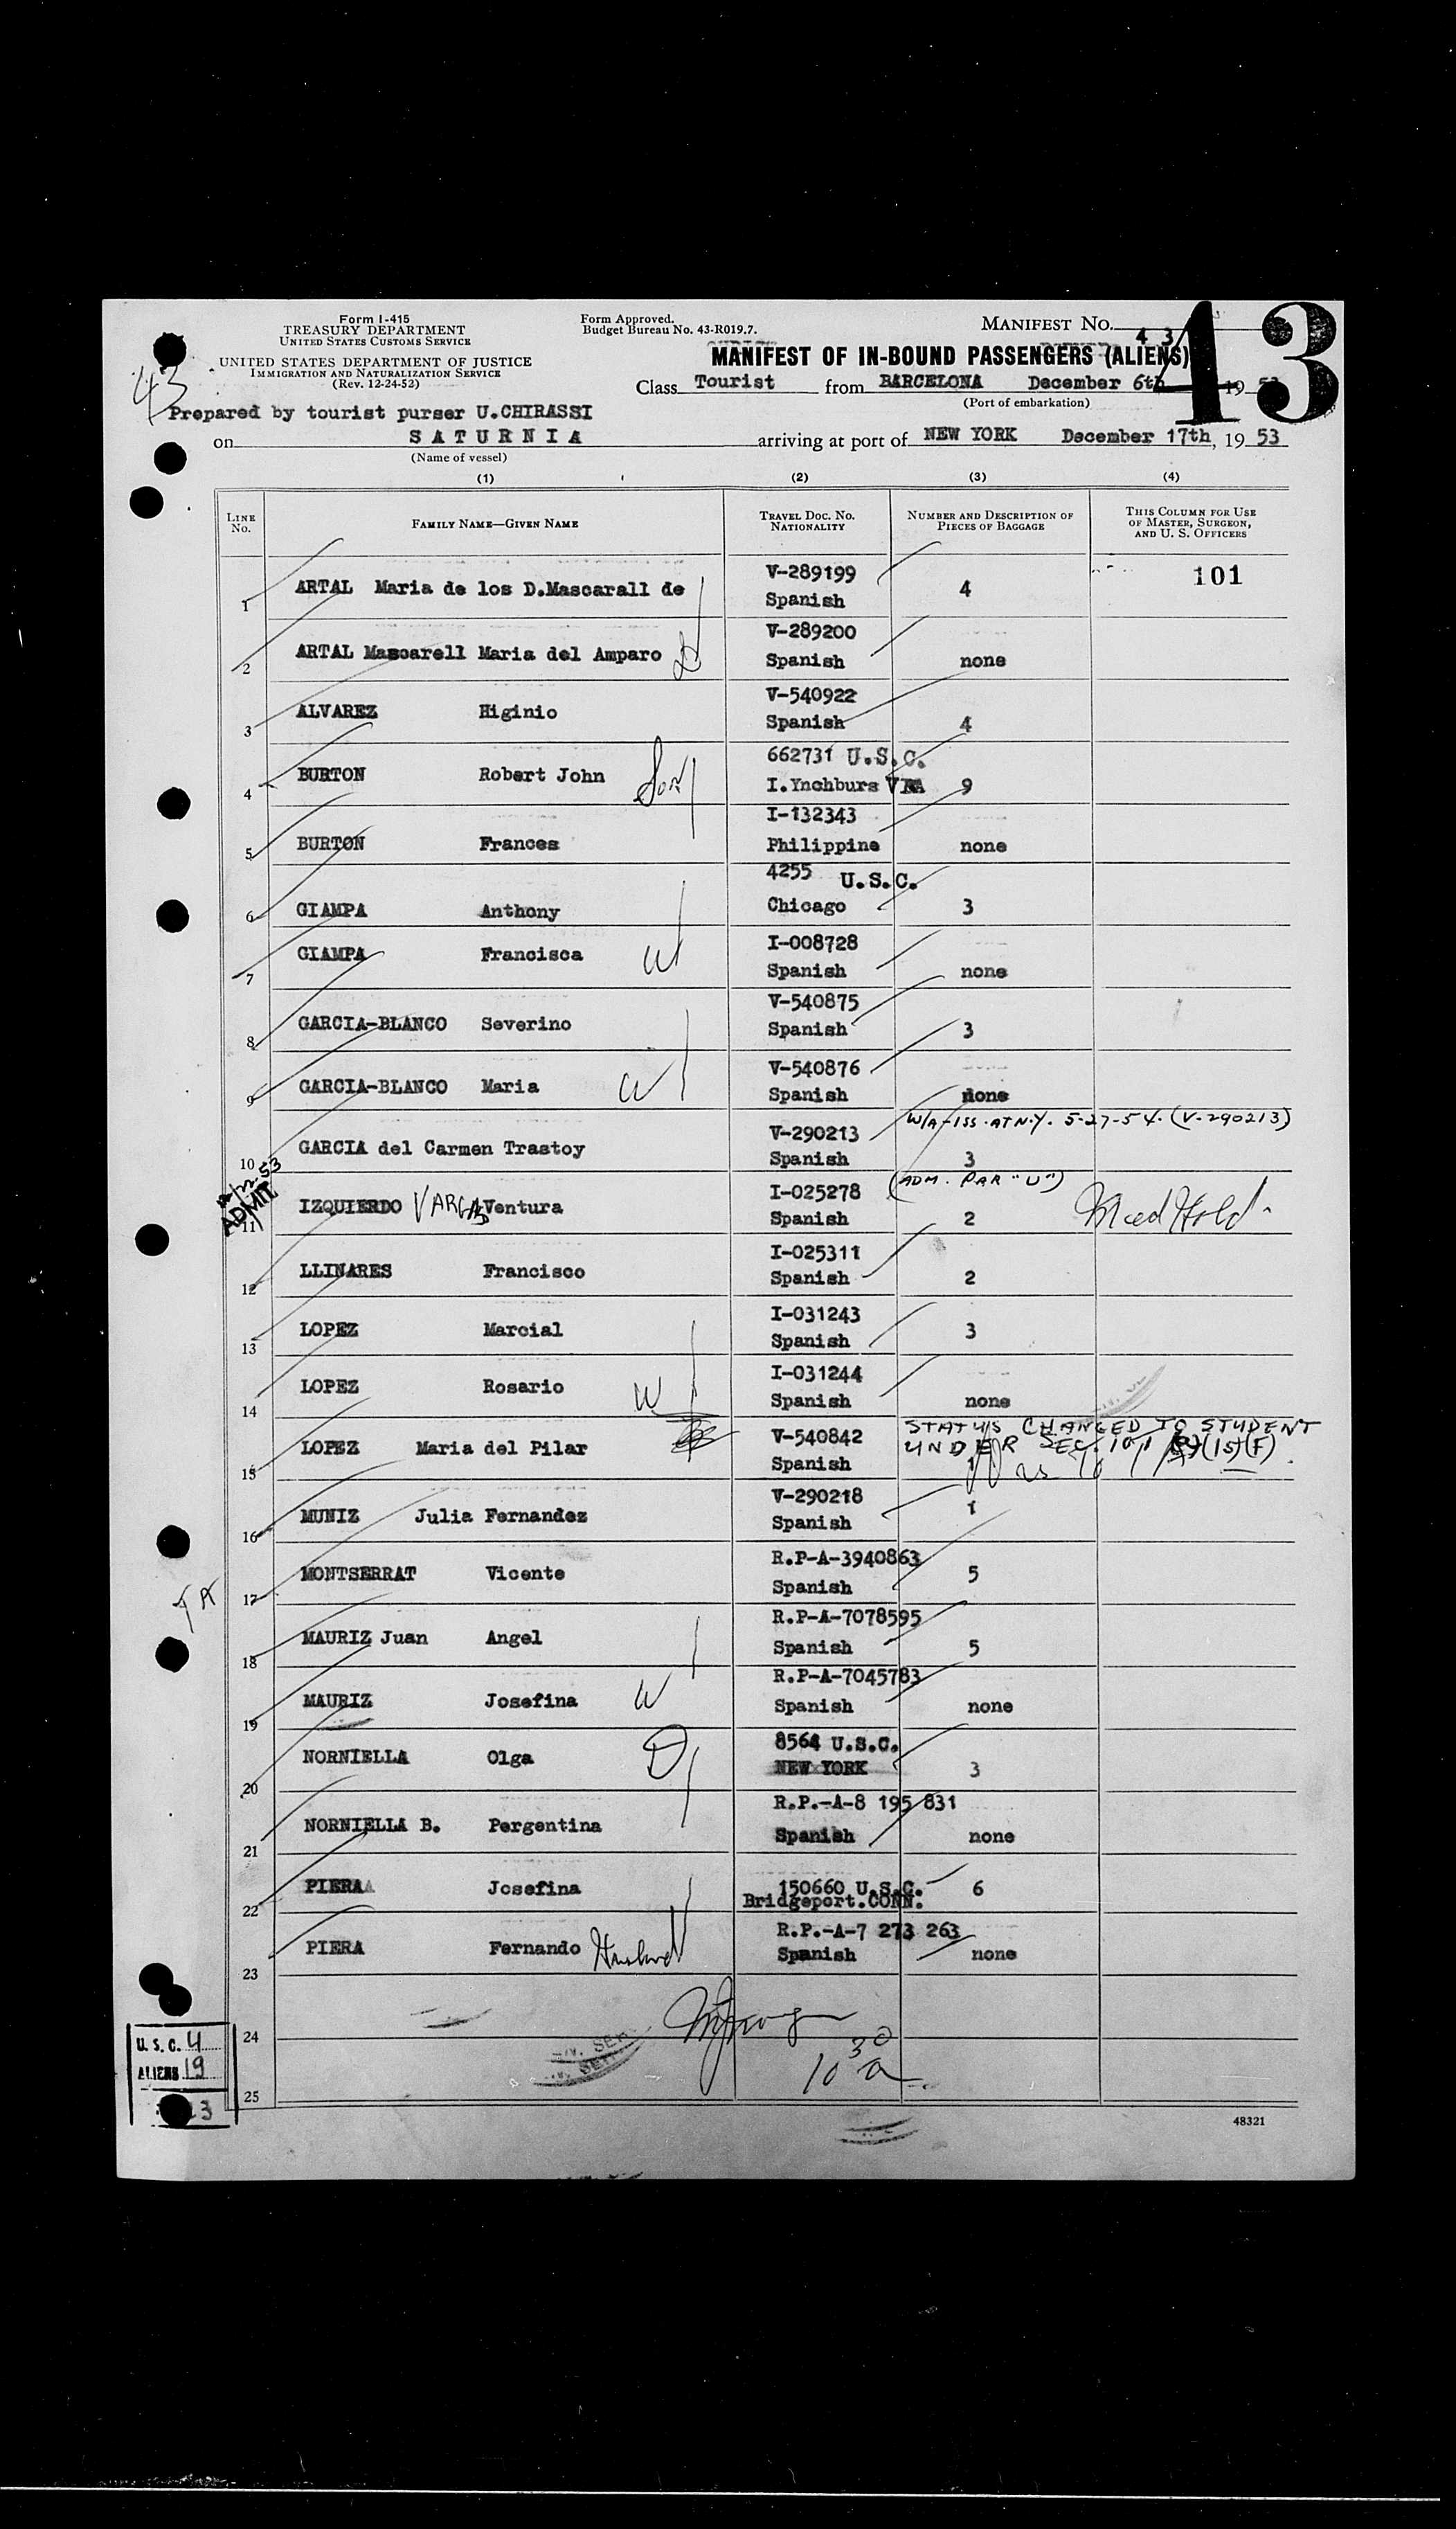 Form I-415
TREASURY DEPARTMENT
UNITED STATES CUSTOMS SERVICE
UNITED STATES DEPARTMENT OF JUSTICE
IMMIGRATION AND NATURALIZATION SERVICE
(Rev. 12-24-52)
Form Approved.
Budget Bureau No. 43-R019.7.
MANIFEST NO. 43
43
43
MANIFEST OF IN-BOUND PASSENGERS (ALIENS)
Class Tourist from BARCELONA December 6th, 19 53
(Port of embarkation)
Prepared by tourist purser U.CHIRASSI
on SATURNIA arriving at port of NEW YORK December 17th, 19 53
(Name of vessel)
(1) (2) (3) (4)
LINE No. FAMILY NAME—GIVEN NAME TRAVEL DOC. NO. NATIONALITY NUMBER AND DESCRIPTION OF PIECES OF BAGGAGE THIS COLUMN FOR USE OF MASTER, SURGEON, AND U. S. OFFICERS
101
1 ARTAL Maria de los D.Mascarall de V-289199 Spanish 4
2 ARTAL Mascarell Maria del Amparo D V-289200 Spanish none
3 ALVAREZ Higinio V-540922 Spanish 4
4 BURTON Robert John Son 662731 U.S.C. I.Ynchburs VRA 9
5 BURTON Frances I-132343 Philippine none
6 GIAMPA Anthony 4255 U.S.C. Chicago 3
7 GIAMPA Francisca W I-008728 Spanish none
8 GARCIA-BLANCO Severino V-540875 Spanish 3
9 GARCIA-BLANCO Maria W V-540876 Spanish none
W/A-ISS. AT N.Y. 5-27-54. (V-290213)
10 GARCIA del Carmen Trastoy V-290213 Spanish 3
(ADM. PAR "U")
12/22 53
ADMIT.
11 IZQUIERDO VARGAS Ventura I-025278 Spanish 2 Med Hold
12 LLINARES Francisco I-025311 Spanish 2
13 LOPEZ Marcial I-031243 Spanish 3
14 LOPEZ Rosario W I-031244 Spanish none
STATUS CHANGED TO STUDENT
UNDER SEC. 101 (a)(15)(F)
15 LOPEZ Maria del Pilar V-540842 Spanish 1
16 MUNIZ Julia Fernandez V-290218 Spanish 1
17 MONTSERRAT Vicente R.P-A-3940863 Spanish 5
18 MAURIZ Juan Angel R.P-A-7078595 Spanish 5
19 MAURIZ Josefina W R.P-A-7045783 Spanish none
20 NORNIELLA Olga D 8564 U.S.C. NEW YORK 3
21 NORNIELLA B. Pergentina R.P.-A-8 195 831 Spanish none
22 PIERA Josefina 150660 U.S.C. Bridgeport.CONN. 6
23 PIERA Fernando Husband R.P.-A-7 273 263 Spanish none
24
10 30 a
25
U.S.C. 4
ALIENS 19
23
48321